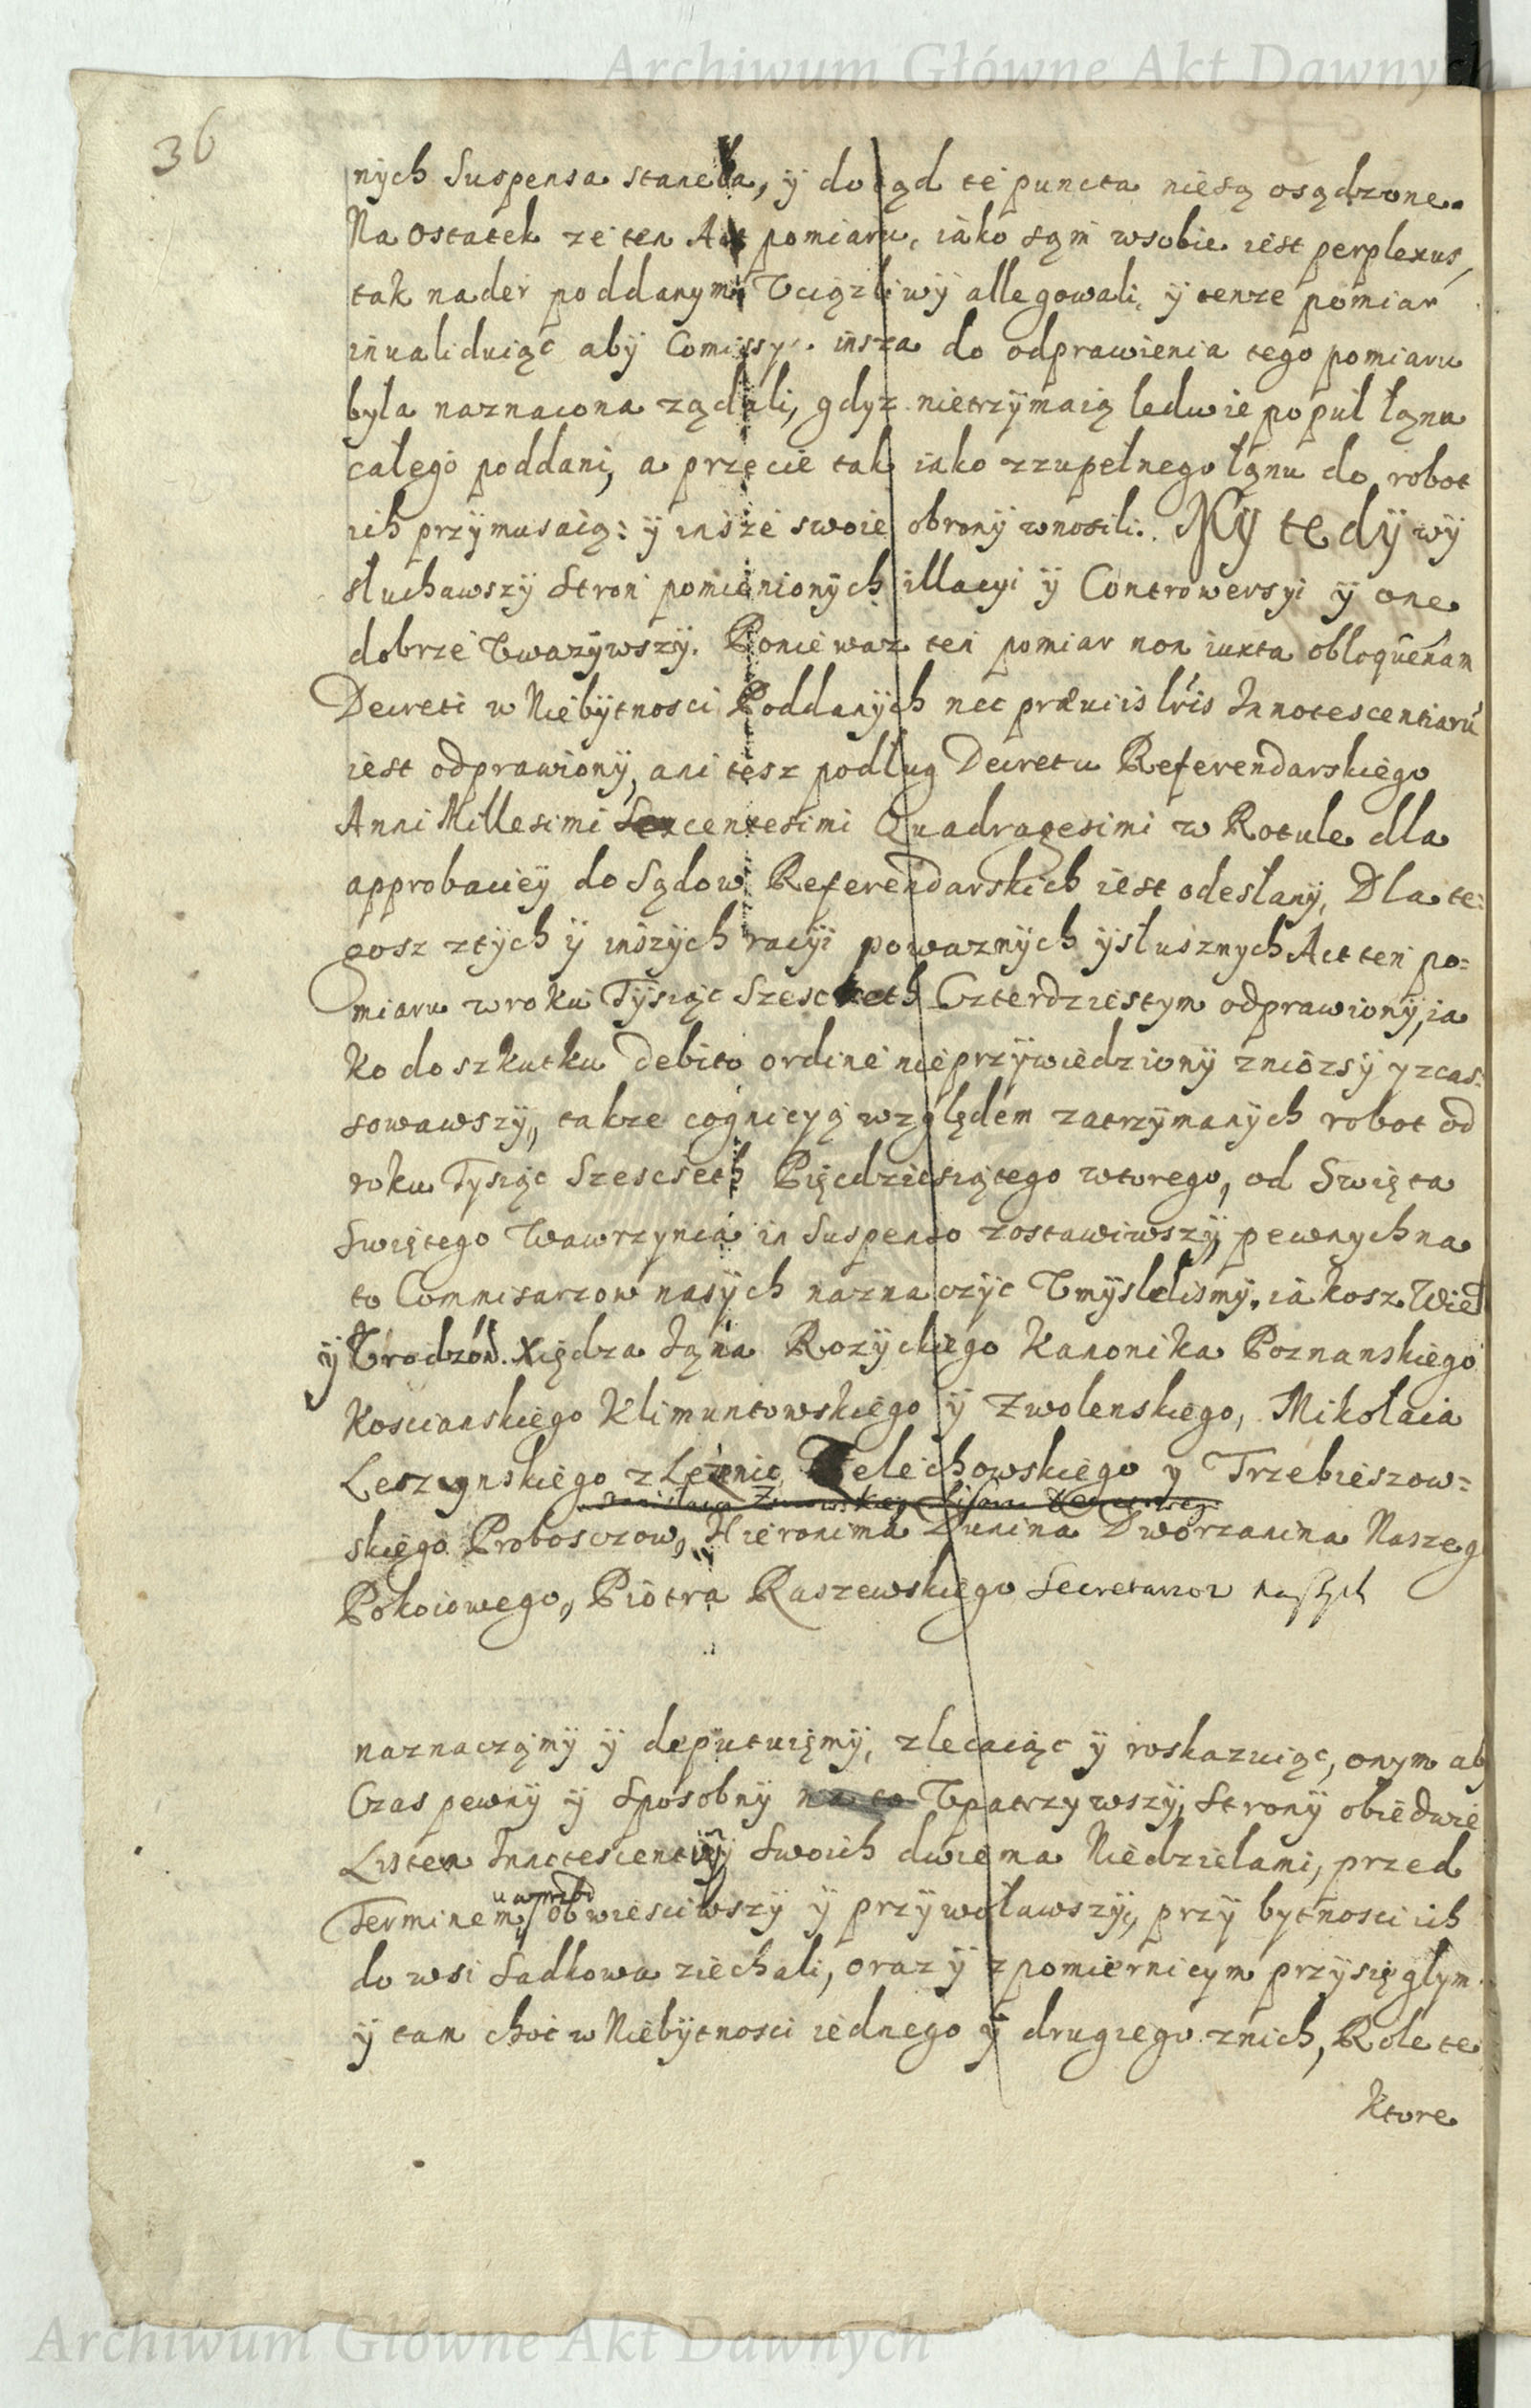 Archiwum Główne Akt Dawnych
36
nych Suspensa stanęła, ÿ dotąd te puncta niesą osądzone.
Na ostatek ze ten Act pomiaru, iáko sąm wsobie iest perplexus,
tak nader poddanym Vciązliwÿ allegowali, ÿ tenze pomiar
inualiduiąc abÿ Comissya insza do odprawienia tego pomiaru
była naznacona ząd̨ali, gdyz nietrzÿmaią ledwie po puł łąnu
całego poddani, a przecie tak iako zzupełnego łąnu do robot
ich przÿmusaią: ÿ insze swoie obronÿ wnosili. My tedÿ wÿ
słuchawszÿ Stron pomienionÿch illacyi ÿ Controwersyi ÿ one
dobrze Vwazÿwszÿ. Poniewaz ten pomiar non iuxta obloquenam
Decreti w Niebÿtnosci Poddanÿch nec præuiis lris Innotescentiarũ
iest odprawionÿ, ani tesz podług Decretu Referendarskiego
Anni Millesimi Sexcentesimi Quadragesimi w Rotule dla
approbaciey do Sądow Referendarskich iest odesłanÿ, Dla te:
gosz ztÿch ÿ inszÿch racÿi powaznÿch ÿ słusznych Act ten po=
miaru w roku Tÿsiąc Szescseth Czterdziestym odprawionÿ, ia
ko do szkutku debito ordine nieprzÿwiedzionÿ zniozsÿ y zcas:
sowawszÿ, takze cognicyą względem zatrzÿmanÿch robot od
roku Tysiąc Szescseth Pięcdziesiątego wtorego, od Swięta
Swiętego Wawrzynca in Suspenso zostawiwszÿ, pewnych na
to Commisarzow nasÿch naznaczÿc Vmÿslelismÿ. iákosz Wiel
ÿ Vrodzon. Xiędza Jąna Rozÿckiego Kanonika Poznanskiego
Kosciańskiego Klimuntowskiego ÿ Zwolenskiego, Mikołaia
Leszcynskiego z Leznic, Zelechowskiego y Trzebieszow=
skiego Proboszczow, Hieronima Dunina Dworzanina Naszeg
Pokoiowego, Piotra Raszewskiego Secretarzow naszych
naznacząmÿ ÿ deputuięmÿ, zlecaiąc ÿ roskazuiąc, onym aby
Czas pewnÿ ÿ Sposobnÿ na to Vpatrzywszÿ, Stronÿ obiedwie
Listem Innotescentiÿ Swoich dwiema Niedzielami, przed
Terminem, obwiesciwszÿ ÿ przÿwoławszÿ, przÿ bytnosci ich
do wsi Sadkowa ziechali, oraz ÿ z pomiernicym przysięgłym
ÿ tam choc w Niebÿtnosci iednego ÿ drugiego znich, Role te
Ktore
Archiwum Główne Akt Dawnych